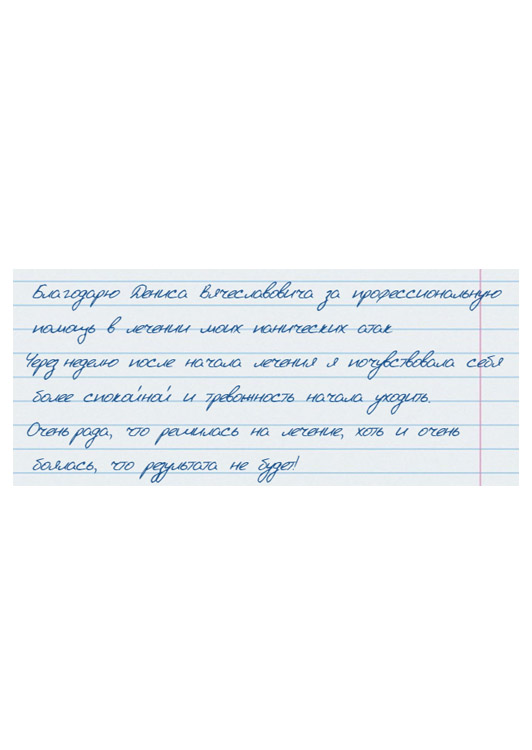 Благодарю Дениса Вячеславовича за профессиональную
помощь в лечении моих панических атак
Через неделю после начала лечения я почувствовала себя
более спокойной и тревожность начала уходить.
Очень рада, что решилась на лечение, хоть и очень
боялась, что результата не будет!